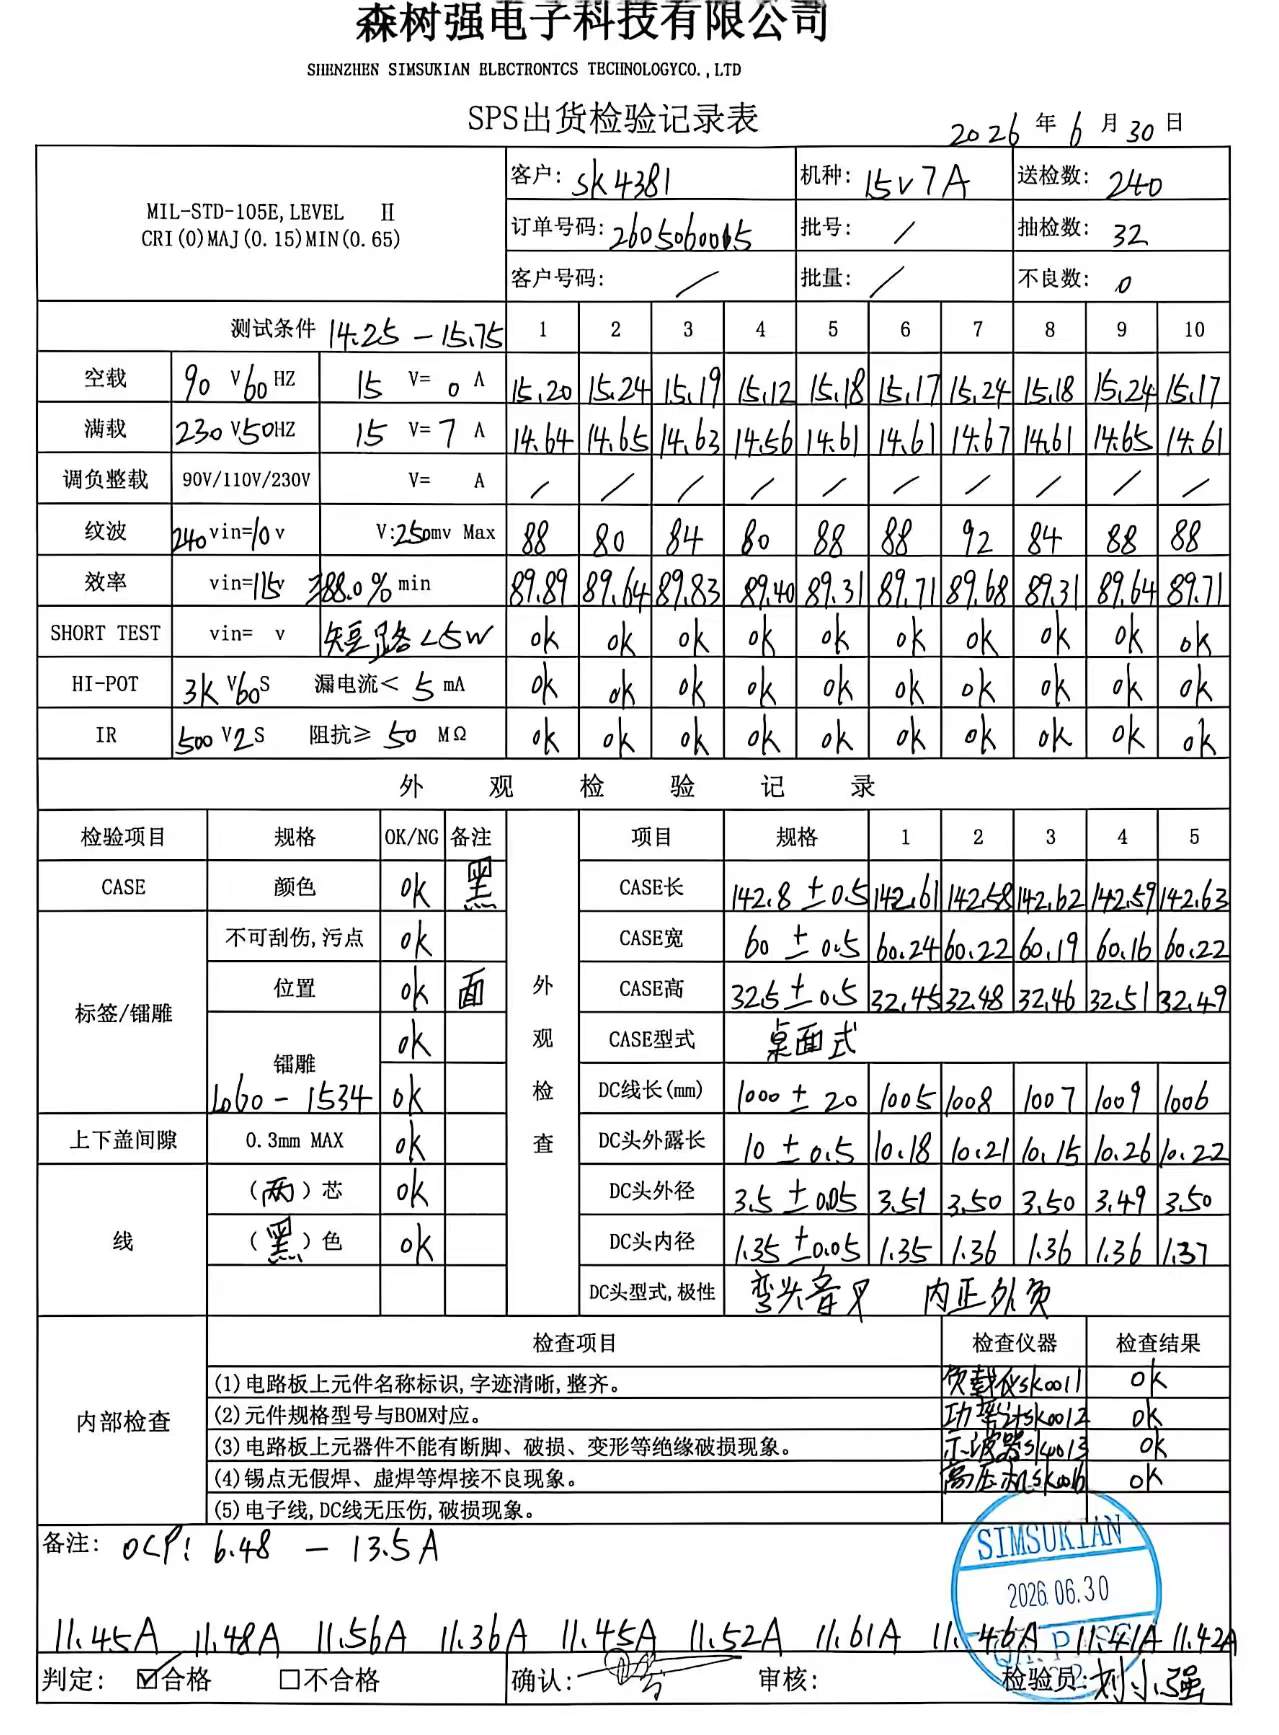 森树强电子科技有限公司
SHENZHEN SIMSUKIAN ELECTRONTCS TECHNOLOGYCO.,LTD
SPS出货检验记录表
2026 年 6 月 30 日
MIL-STD-105E,LEVEL Ⅱ
CRI(0)MAJ(0.15)MIN(0.65)
客户: SK4381 机种: 15V7A 送检数: 240
订单号码: 2605060065 批号: / 抽检数: 32
客户号码: / 批量: / 不良数: 0
测试条件 14.25-15.75 1 2 3 4 5 6 7 8 9 10
空载 90 V 60 HZ 15 V= 0 A 15.20 15.24 15.19 15.12 15.18 15.17 15.24 15.18 15.24 15.17
满载 230 V 50 HZ 15 V= 7 A 14.64 14.65 14.63 14.56 14.61 14.61 14.67 14.61 14.65 14.61
调负整载 90V/110V/230V V= A / / / / / / / / / /
纹波 240 vin=10 v V:250mv Max 88 80 84 80 88 88 92 84 88 88
效率 vin=115v ≥88.0% min 89.89 89.64 89.83 89.40 89.31 89.71 89.68 89.31 89.64 89.71
SHORT TEST vin= v 短路<5W ok ok ok ok ok ok ok ok ok ok
HI-POT 3K V 60 S 漏电流< 5 mA ok ok ok ok ok ok ok ok ok ok
IR 500 V 2 S 阻抗≥ 50 MΩ ok ok ok ok ok ok ok ok ok ok
外观检验记录
检验项目 规格 OK/NG 备注 外观检查 项目 规格 1 2 3 4 5
CASE 颜色 ok 黑 CASE长 142.8±0.5 142.61 142.58 142.62 142.59 142.63
标签/镭雕 不可刮伤,污点 ok CASE宽 60±0.5 60.24 60.22 60.19 60.16 60.22
位置 ok 面 CASE高 32.5±0.5 32.45 32.48 32.46 32.51 32.49
镭雕 ok CASE型式 桌面式
1060-1534 ok DC线长(mm) 1000±20 1005 1008 1007 1009 1006
上下盖间隙 0.3mm MAX ok DC头外露长 10±0.5 10.18 10.21 10.15 10.26 10.22
线 (两)芯 ok DC头外径 3.5±0.05 3.51 3.50 3.50 3.49 3.50
(黑)色 ok DC头内径 1.35±0.05 1.35 1.36 1.36 1.36 1.37
DC头型式,极性 弯头音叉 内正外负
内部检查 检查项目 检查仪器 检查结果
(1)电路板上元件名称标识,字迹清晰,整齐。 负载仪SK0011 ok
(2)元件规格型号与BOM对应。 功率计SK0012 ok
(3)电路板上元器件不能有断脚、破损、变形等绝缘破损现象。 示波器SK0013 ok
(4)锡点无假焊、虚焊等焊接不良现象。 高压机SK0016 ok
(5)电子线,DC线无压伤,破损现象。
备注: OCP: 6.48 - 13.5A
SIMSUKIAN
2026.06.30
11.45A 11.48A 11.56A 11.36A 11.45A 11.52A 11.61A 11.46A 11.41A 11.42A
判定: ☑合格 □不合格 确认: 审核: 检验员: 刘小强